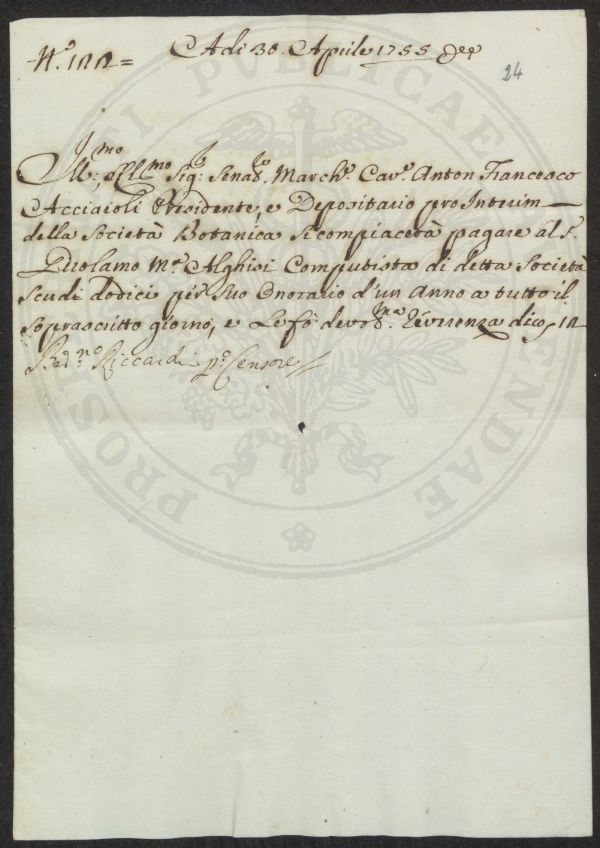 N.º 122 =
A dì 30. Aprile 1755
24
Ill:mo, e Cl:mo Sig:re Sena:re March:e Cav:e Anton Francesco
Acciaioli Presidente, e Depositario pro Interim
della Società Botanica si compiacerà pagare al S:r
Girolamo M:a Alghisi Computista di detta Società
Scudi dodici per Suo Onorario d'un Anno a tutto il
soprascritto giorno, e Le fò devot:ma Riverenza dico 12
Bed:no Riccardi p:o Censore
PROSPERITATI PUBLICAE AUGENDAE